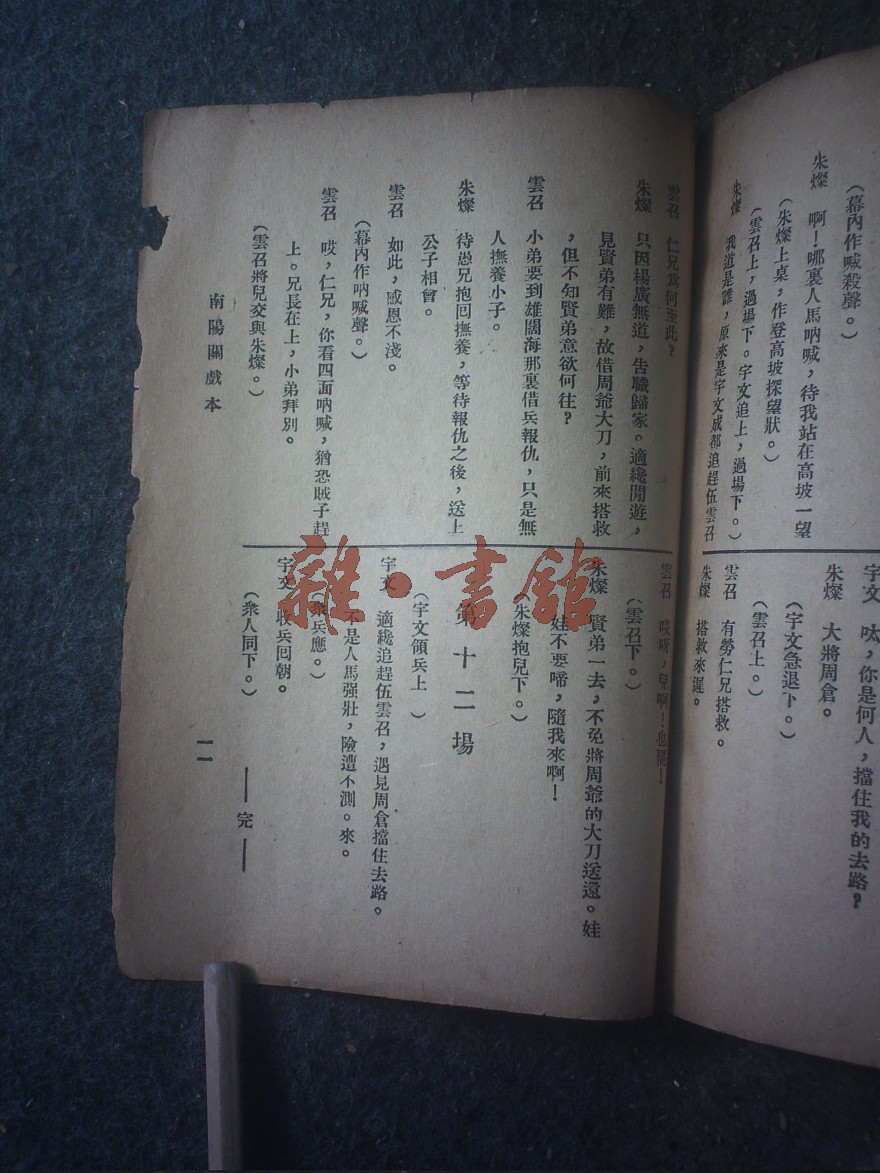 （幕內作喊殺聲。）
朱燦　啊！哪裏人馬吶喊，待我站在高坡一望
（朱燦上桌，作登高坡探望狀。）
（雲召上，過場下。宇文追上，過場下。）
朱燦　我道是誰，原來是宇文成都追趕伍雲召
宇文　呔，你是何人，擋住我的去路？
朱燦　大將周倉。
（宇文急退下。）
（雲召上。）
雲召　有勞仁兄搭救。
朱燦　搭救來遲。
雲召　仁兄爲何至此？
朱燦　只因楊廣無道，告職歸家。適纔閒遊，
見賢弟有難，故借周爺大刀，前來搭救
，但不知賢弟意欲何往？
雲召　小弟要到雄關海那裏借兵報仇，只是無
人撫養小子。
朱燦　待愚兄抱回撫養，等待報仇之後，送上
公子相會。
雲召　如此，感恩不淺。
（幕內作吶喊聲。）
雲召　哎，仁兄，你看四面吶喊，猶恐賊子趕
上。兄長在上，小弟拜別。
（雲召將兒交與朱燦。）
雲召　哎呀，兒啊！也罷！
（雲召下。）
朱燦　賢弟一去，不免將周爺的大刀送還。娃
娃不要啼，隨我來啊！
（朱燦抱兒下。）
第十二場
（宇文領兵上　）
宇文　適纔追趕伍雲召，遇見周倉擋住去路。
不是人馬强壯，險遭不測。來。
（衆兵應。）
宇文　收兵回朝。
（衆人同下。）
——完——
南陽關戲本
一一
雜·書館